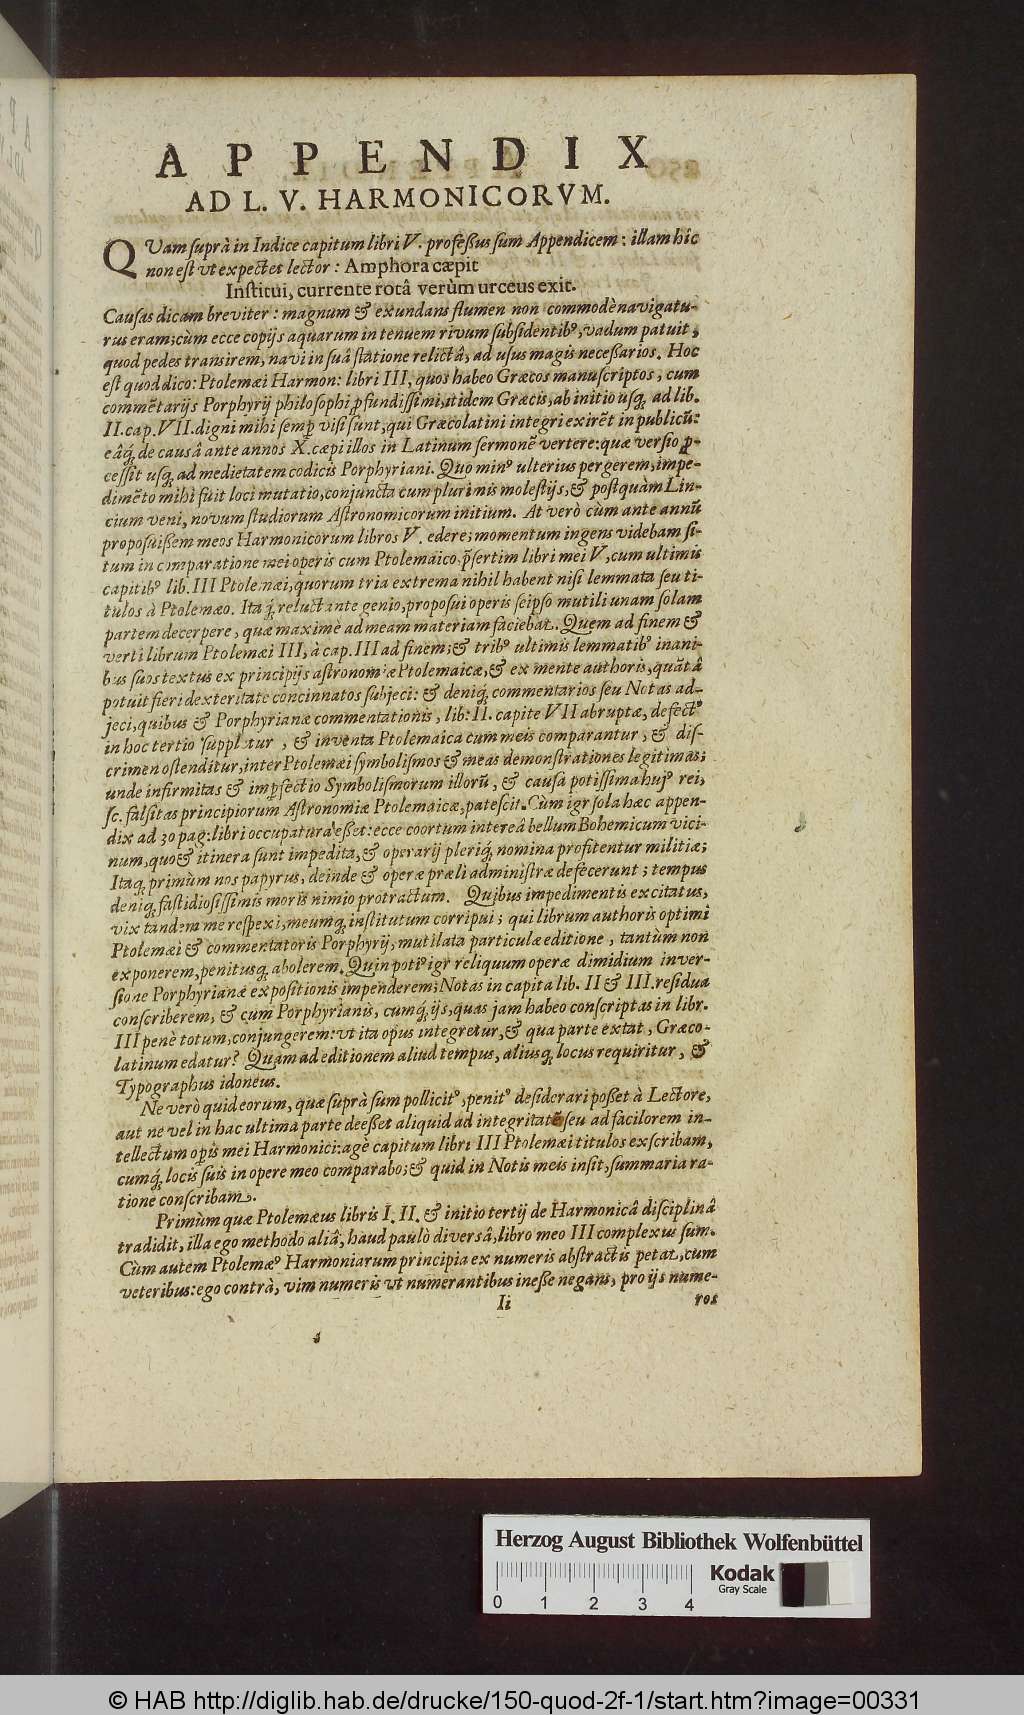 APPENDIX
AD L. V. HARMONICORVM.
QVam suprà in Indice capitum libri V. professus sum Appendicem: illam hîc
non est ut expectet lector: Amphora cæpit
Institui, currente rotâ verùm urceus exit.
Causas dicam breviter: magnum & exundans flumen non commodè navigatu-
rus eram; cùm ecce copijs aquarum in tenuem rivum subsidentibꝰ, vadum patuit,
quod pedes transirem, navi in suâ statione relictâ, ad usus magis necessarios. Hoc
est quod dico: Ptolemæi Harmon: libri III, quos habeo Græcos manuscriptos, cum
commẽtarijs Porphyrij philosophi ꝓfundissimi, itidem Græcis, ab initio usq́; ad lib.
II. cap. VII. digni mihi semp̱ visi sunt, qui Græcolatini integri exirẽt in publicũ:
eâq́; de causâ ante annos X. cæpi illos in Latinum sermonẽ vertere: quæ versio ꝓ-
cessit usq́; ad medietatem codicis Porphyriani. Quo minꝰ ulterius pergerem, impe-
dimẽto mihi fuit loci mutatio, conjuncta cum plurimis molestijs, & postquàm Lin-
cium veni, novum studiorum Astronomicorum initium. At verò cùm ante annũ
proposuissem meos Harmonicorum libros V. edere; momentum ingens videbam si-
tum in comparatione mei operis cum Ptolemaico, p̃sertim libri mei V, cum ultimis
capitibꝰ lib. III Ptolemæi, quorum tria extrema nihil habent nisi lemmata seu ti-
tulos à Ptolemæo. Itaq́; reluctante genio, proposui operis seipso mutili unam solam
partem decerpere, quæ maximè ad meam materiam faciebat. Quem ad finem &
verti librum Ptolemæi III, à cap. III ad finem; & tribꝰ ultimis lemmatibꝰ inani-
bus suos textus ex principijs astronomiæ Ptolemaicæ, & ex mente authoris, quãtâ
potuit fieri dexteritate concinnatos subjeci: & deniq́; commentarios seu Notas ad-
jeci, quibus & Porphyrianæ commentationis, lib: II. capite VII abruptæ, defectꝰ
in hoc tertio suppletur, & inventa Ptolemaica cum meis comparantur, & dis-
crimen ostenditur, inter Ptolemæi symbolismos & meas demonstrationes legitimas;
unde infirmitas & imp̱fectio Symbolismorum illorũ, & causa potissima hujꝰ rei,
sc. falsitas principiorum Astronomiæ Ptolemaicæ, patescit. Cùm igr sola hæc appen-
dix ad 30 pag: libri occupatura esset: ecce coortum intereâ bellum Bohemicum vici-
num, quo & itinera sunt impedita, & operarij pleriq́; nomina profitentur militiæ;
Itaq́; primùm nos papyrus, deinde & operæ præli administræ defecerunt; tempus
deniq́; fastidiosissimis moris nimio protractum. Quibus impedimentis excitatus,
vix tandem me respexi, meumq́; institutum corripui; qui librum authoris optimi
Ptolemæi & commentatoris Porphyrij, mutilata particulæ editione, tantùm non
exponerem, penitusq́; abolerem. Quin potiꝰ igr reliquum operæ dimidium inver-
sione Porphyrianæ expositionis impenderem; Notas in capita lib. II & III. residua
conscriberem, & cum Porphyrianis, cumq́; ijs, quas jam habeo conscriptas in libr.
III penè totum, conjungerem: ut ita opus integretur, & qua parte extat, Græco-
latinum edatur? Quam ad editionem aliud tempus, aliusq́; locus requiritur, &
Typographus idoneus.
Ne verò quid eorum, quæ suprà sum pollicitꝰ, penitꝰ desiderari posset à Lectore,
aut ne vel in hac ultima parte deesset aliquid ad integritatẽ seu ad facilorem in-
tellectum op̱is mei Harmonici: agè capitum libri III Ptolemæi titulos exscribam,
cumq́; locis suis in opere meo comparabo; & quid in Notis meis insit, summaria ra-
tione conscribam.
Primùm quæ Ptolemæus libris I. II. & initio tertij de Harmonicâ disciplinâ
tradidit, illa ego methodo aliâ, haud paulò diversâ, libro meo III complexus sum.
Cùm autem Ptolemæꝰ Harmoniarum principia ex numeris abstractis petat, cum
veteribus: ego contrà, vim numeris ut numerantibus inesse negans, pro ijs nume-
Ii
ros
Herzog August Bibliothek Wolfenbüttel
Kodak
Gray Scale
0 1 2 3 4
© HAB http://diglib.hab.de/drucke/150-quod-2f-1/start.htm?image=00331